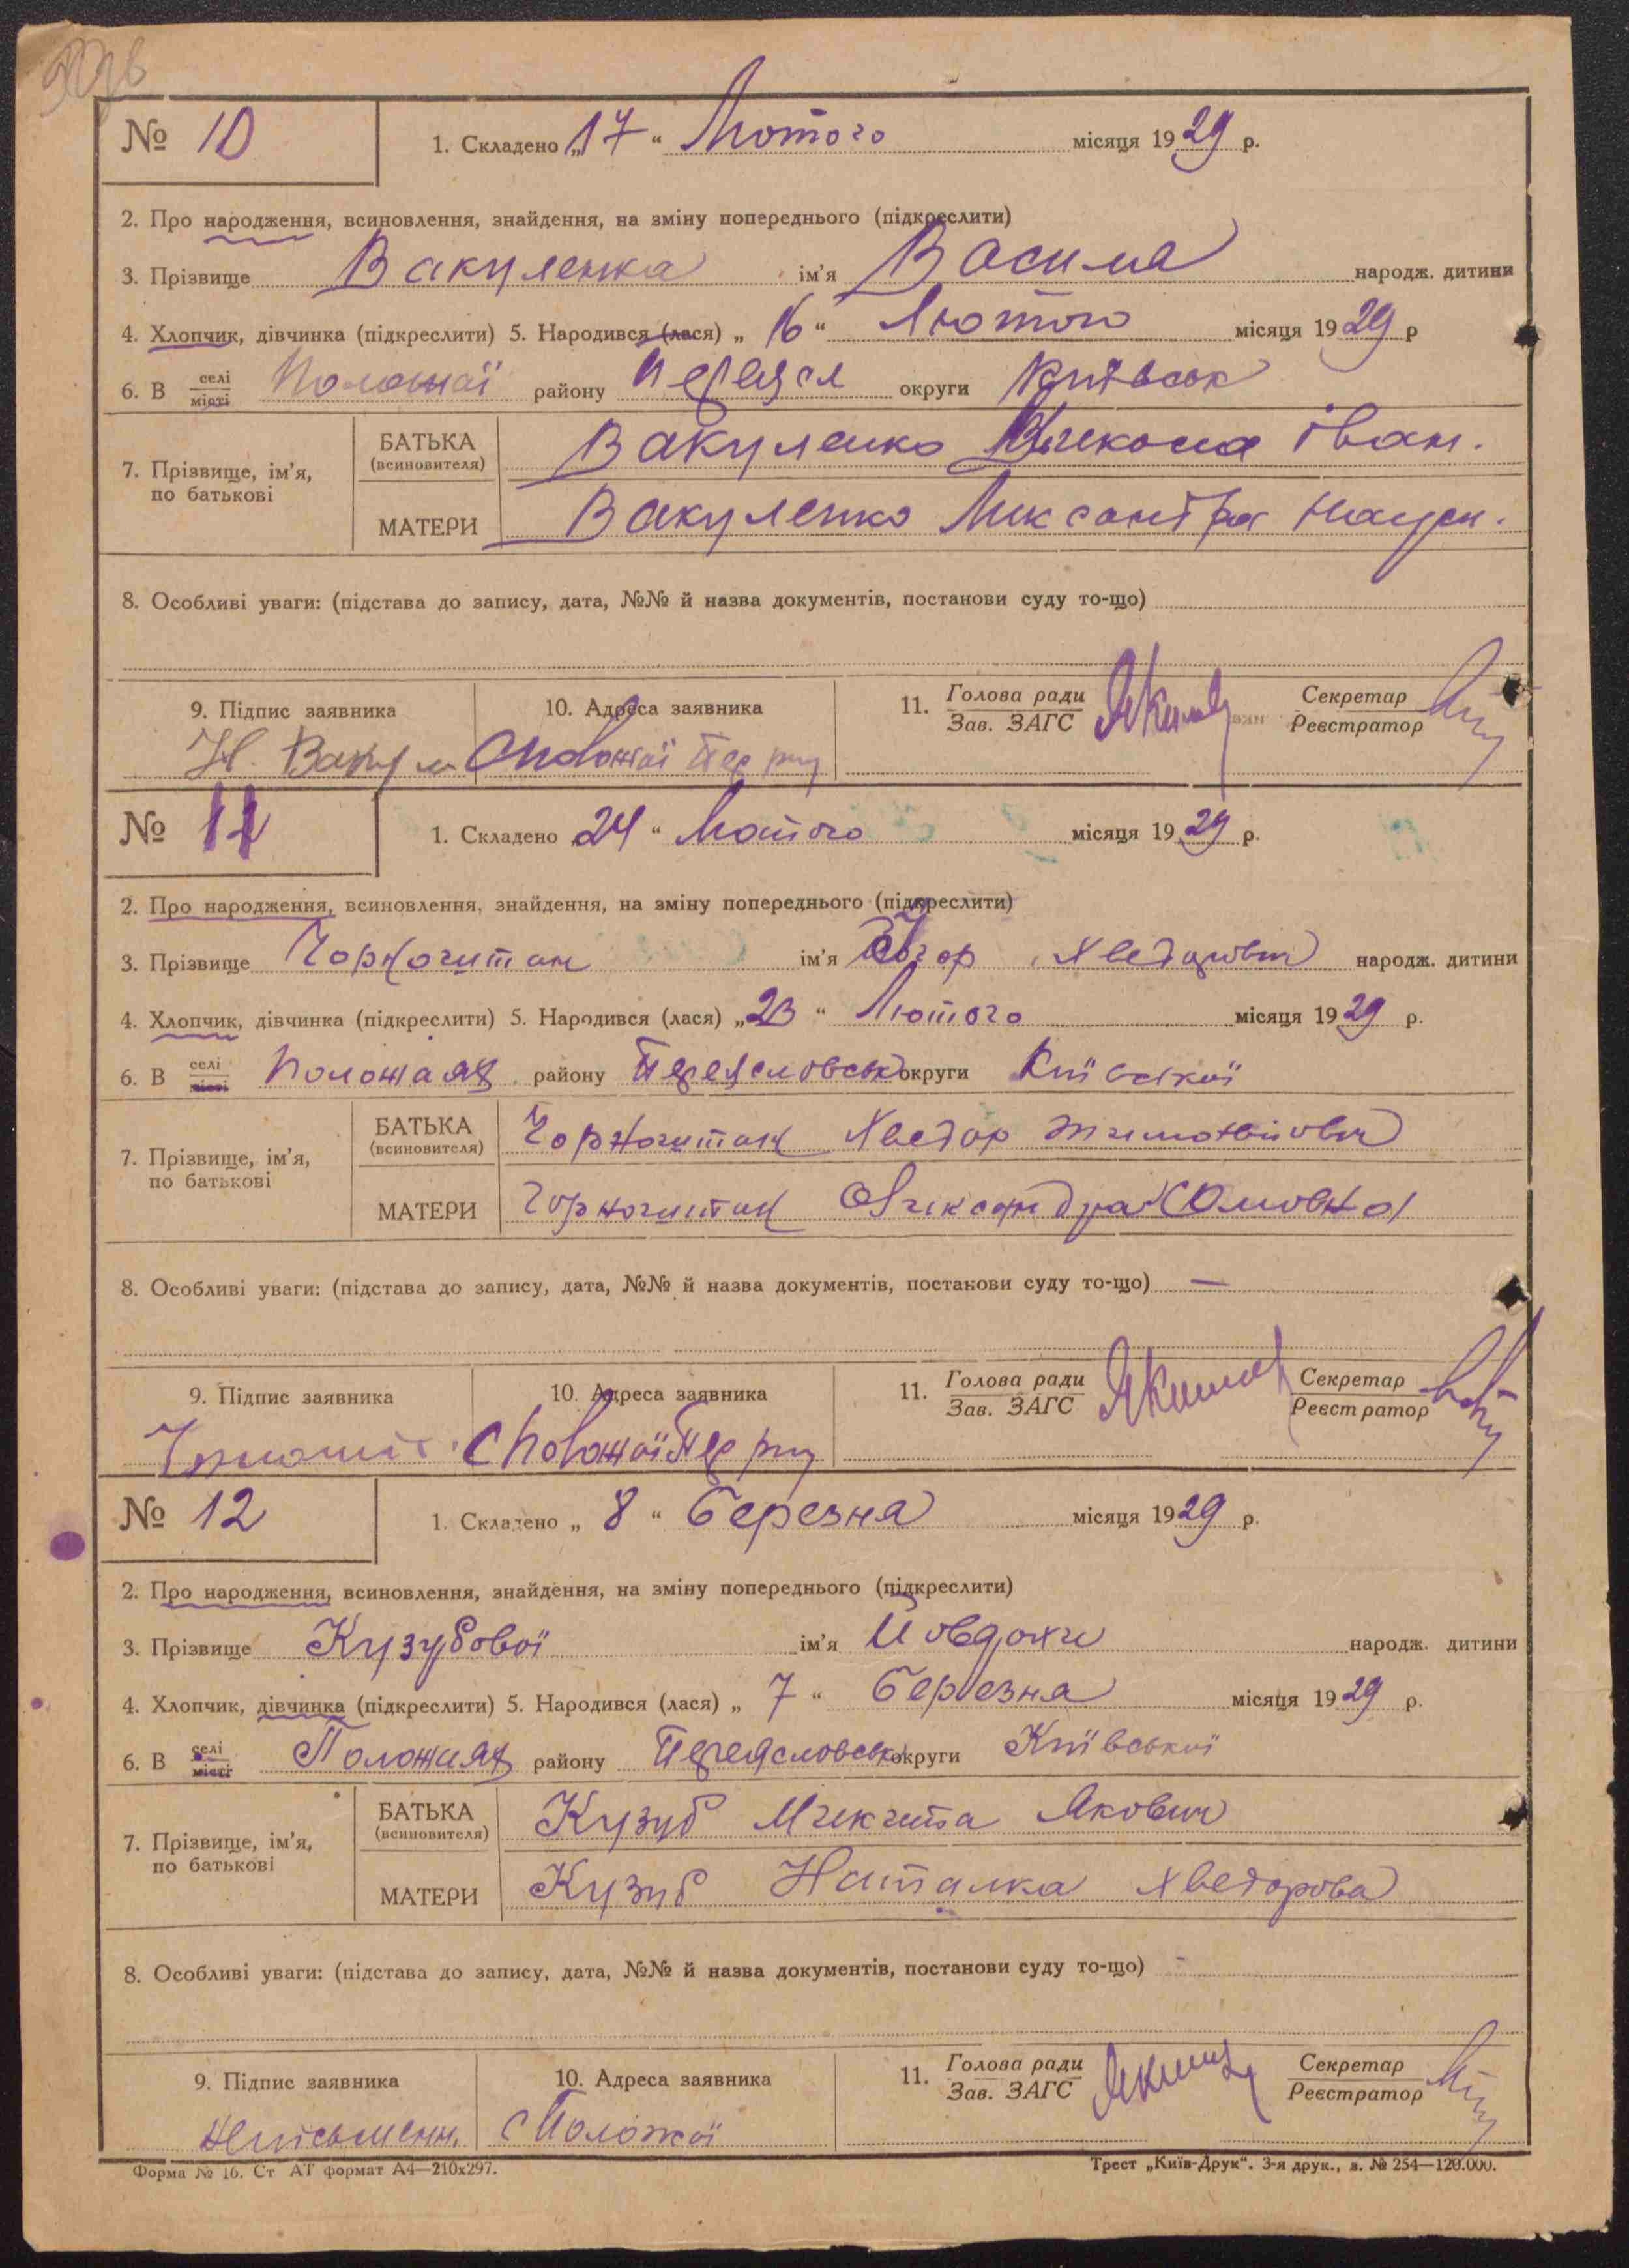 № 10 1. Складено „17“ Лютого місяця 1929 р.
2. Про народження, всиновлення, знайдення, на зміну попереднього (підкреслити)
3. Прізвище Вакуленка ім’я Василя народж. дитини
4. Хлопчик, дівчинка (підкреслити) 5. Народився (лася) „16“ Лютого місяця 1929 р
6. В селі місті Положаї району Переясл округи Київськ
7. Прізвище, ім’я, по батькові
БАТЬКА (всиновителя) Вакуленко Микола Іван.
МАТЕРИ Вакуленко Наум.
8. Особливі уваги: (підстава до запису, дата, №№ й назва документів, постанови суду то-що)
9. Підпис заявника 10. Адреса заявника 11. Голова ради Зав. ЗАГС Секретар Реєстратор
Н. Вакул с Положаї Пер р-ну
№ 11 1. Складено 24“ Лютого місяця 1929 р.
2. Про народження, всиновлення, знайдення, на зміну попереднього (підкреслити)
3. Прізвище Чорноштан ім’я Хведорович народж. дитини
4. Хлопчик, дівчинка (підкреслити) 5. Народився (лася) „23“ Лютого місяця 1929 р.
6. В селі місті Положаях району Переясловськ округи Київської
7. Прізвище, ім’я, по батькові
БАТЬКА (всиновителя) Чорноштан Хведор Тимофійович
МАТЕРИ Чорноштан Олександра
8. Особливі уваги: (підстава до запису, дата, №№ й назва документів, постанови суду то-що) —
9. Підпис заявника 10. Адреса заявника 11. Голова ради Зав. ЗАГС Секретар Реєстратор
с Положаї Пер р-ну
№ 12 1. Складено „8“ Березня місяця 1929 р.
2. Про народження, всиновлення, знайдення, на зміну попереднього (підкреслити)
3. Прізвище Кузубової ім’я Йовдохи народж. дитини
4. Хлопчик, дівчинка (підкреслити) 5. Народився (лася) „7“ Березня місяця 1929 р.
6. В селі місті Положаях району Переясловськ округи Київської
7. Прізвище, ім’я, по батькові
БАТЬКА (всиновителя) Кузуб Микита Якович
МАТЕРИ Кузуб Наталка Хведорова
8. Особливі уваги: (підстава до запису, дата, №№ й назва документів, постанови суду то-що) -
9. Підпис заявника 10. Адреса заявника 11. Голова ради Зав. ЗАГС Секретар Реєстратор
неписьменн. с Положаї
Форма № 16. Ст АТ формат А4—210х297. Трест „Київ-Друк“. 3-я друк., з. № 254—120.000.